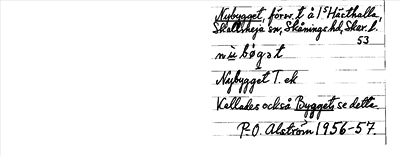 Nybygget, försv. t å 1 Hästhalla,
Skallsheja sn, Skånings hd, Skar. l.
53
Nybygget T. ek
Kallades också Bygget, se detta.
P.O. Alström 1956-57.